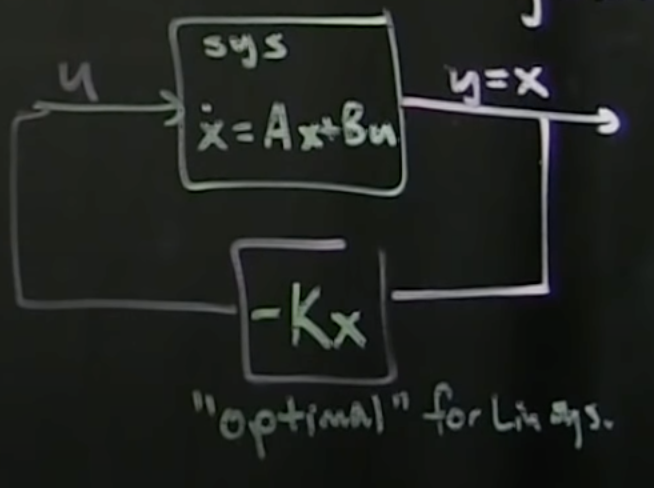 sys
u
ẋ = Ax+Bu
y=x
-Kx
"optimal" for Lin sys.